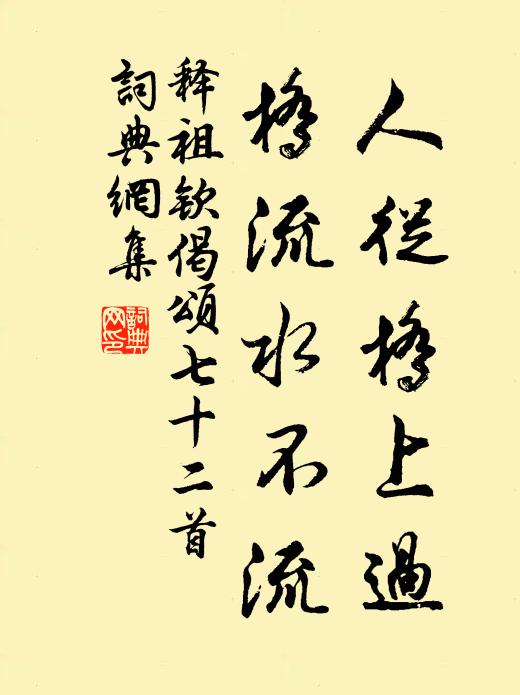 人從橋上過
橋流水不流
釋祖欽偈頌七十二首
詞典網集
詞典
网印